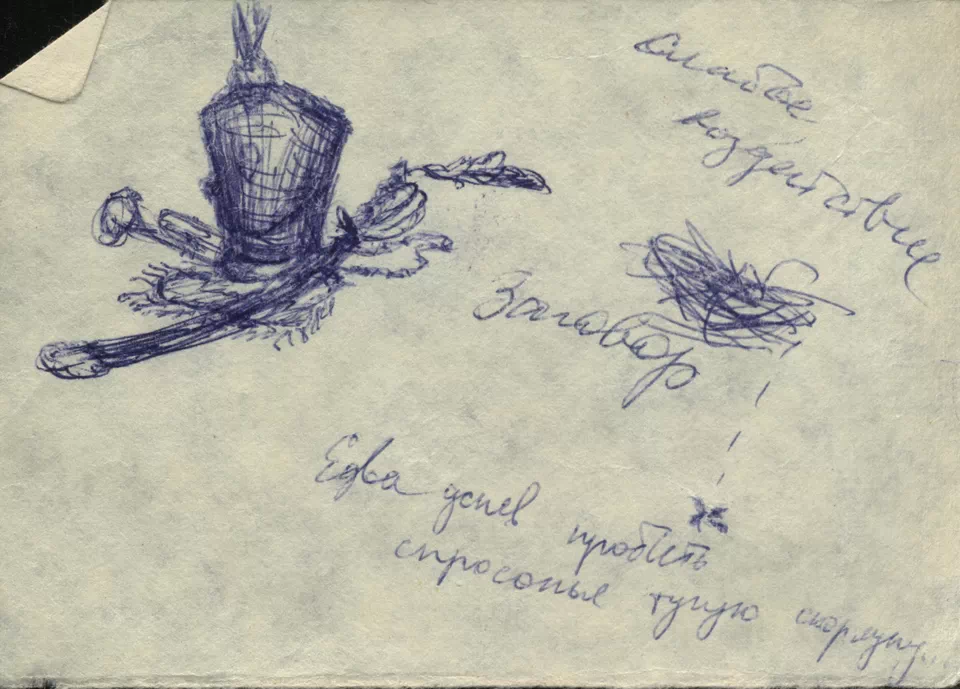 слабое
воздействие
Заговор
Едва успев пробить
спросонья тугую скорлупу...